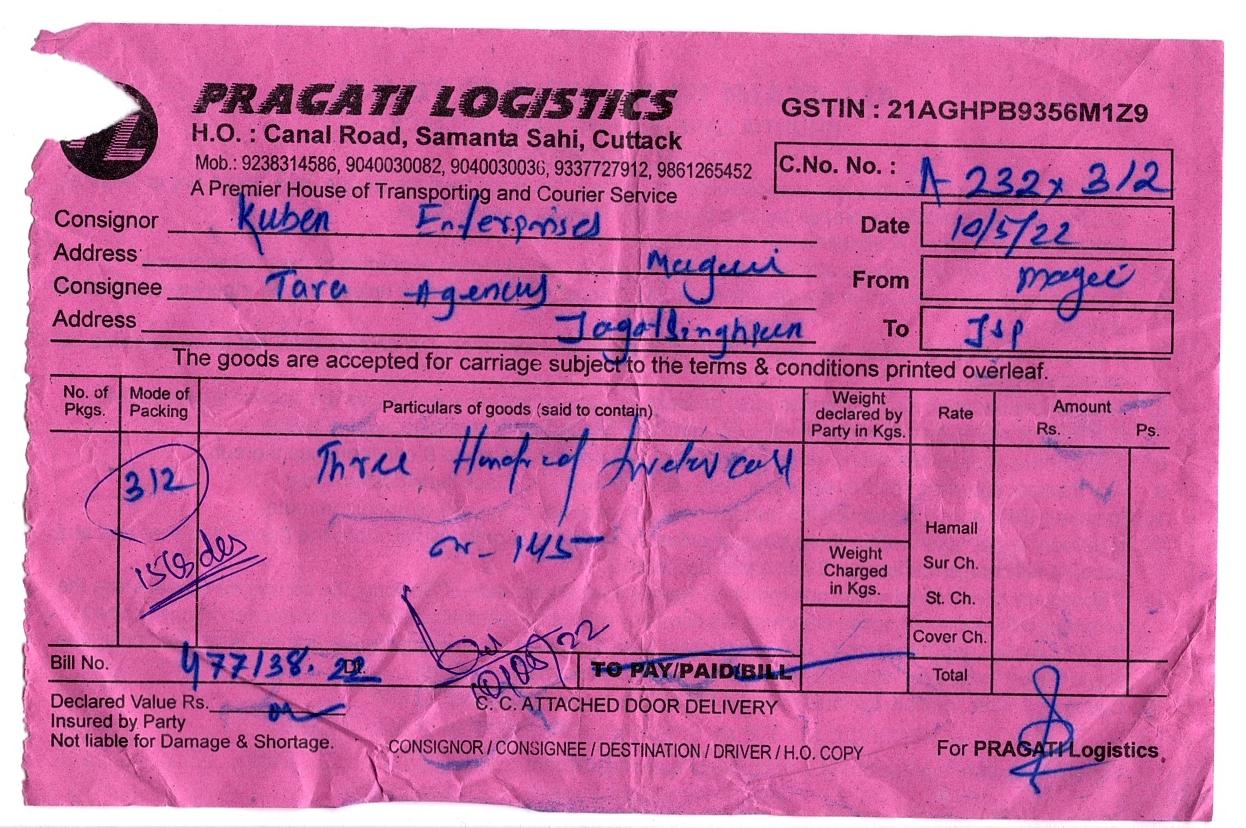 PRAGATI LOGISTICS
H.O. : Canal Road, Samanta Sahi, Cuttack
Mob.: 9238314586, 9040030082, 9040030036, 9337727912, 9861265452
A Premier House of Transporting and Courier Service
GSTIN : 21AGHPB9356M1Z9
C.No. No. : A 232 x 312
Consignor Kuben Enterprises
Date 10/5/22
Address
Consignee Tara Agencies
From
Address Jagatsinghpur
To JSP
The goods are accepted for carriage subject to the terms & conditions printed overleaf.
No. of Pkgs. Mode of Packing Particulars of goods (said to contain) Weight declared by Party in Kgs. Rate Amount Rs. Ps.
312 Three Hundred
145
Hamall
Weight Charged in Kgs.
Sur Ch.
St. Ch.
Cover Ch.
Bill No. 477/38. 22 TO PAY/PAID/BILL Total
10/05/22
Declared Value Rs.
C. C. ATTACHED DOOR DELIVERY
Insured by Party
Not liable for Damage & Shortage.
CONSIGNOR / CONSIGNEE / DESTINATION / DRIVER / H.O. COPY
For PRAGATI Logistics